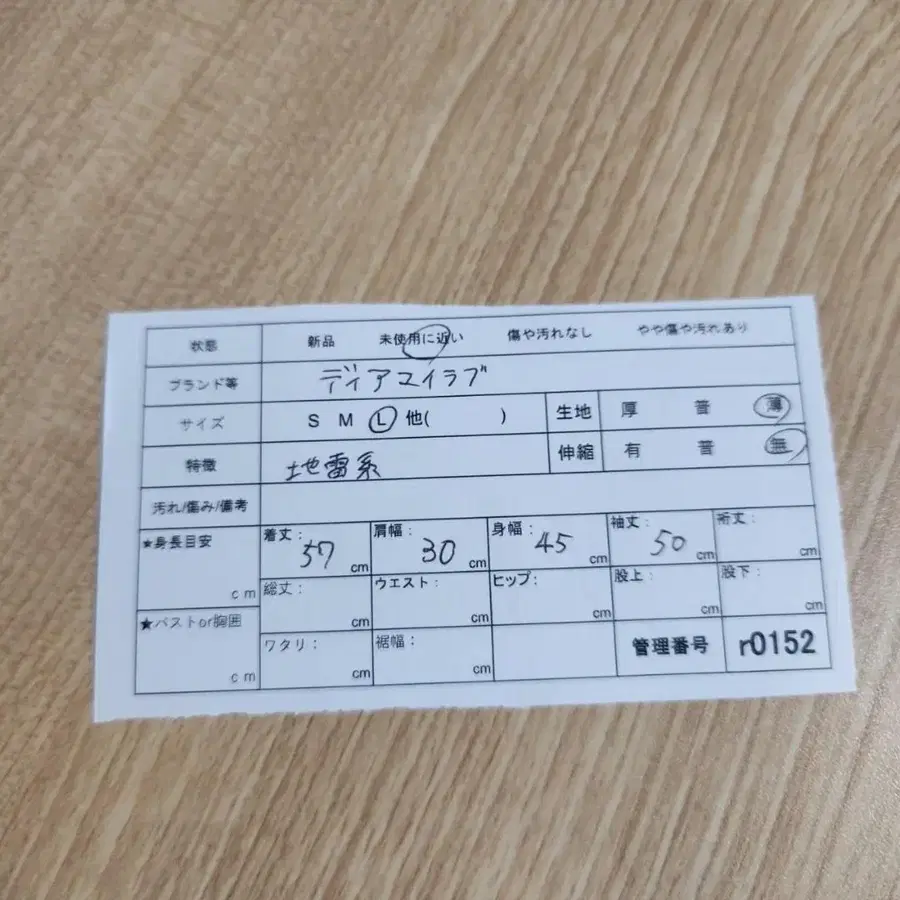 状態 新品 未使用に近い 傷や汚れなし やや傷や汚れあり
ブランド等 ディアマイラブ
サイズ S M L 他( ) 生地 厚 普 薄
特徴 地雷系 伸縮 有 普 無
汚れ/傷み/備考
★身長目安 cm 着丈: 57 cm 肩幅: 30 cm 身幅: 45 cm 袖丈: 50 cm 裄丈: cm
総丈: cm ウエスト: cm ヒップ: cm 股上: cm 股下: cm
★バストor胸囲 cm ワタリ: cm 裾幅: cm 管理番号 r0152